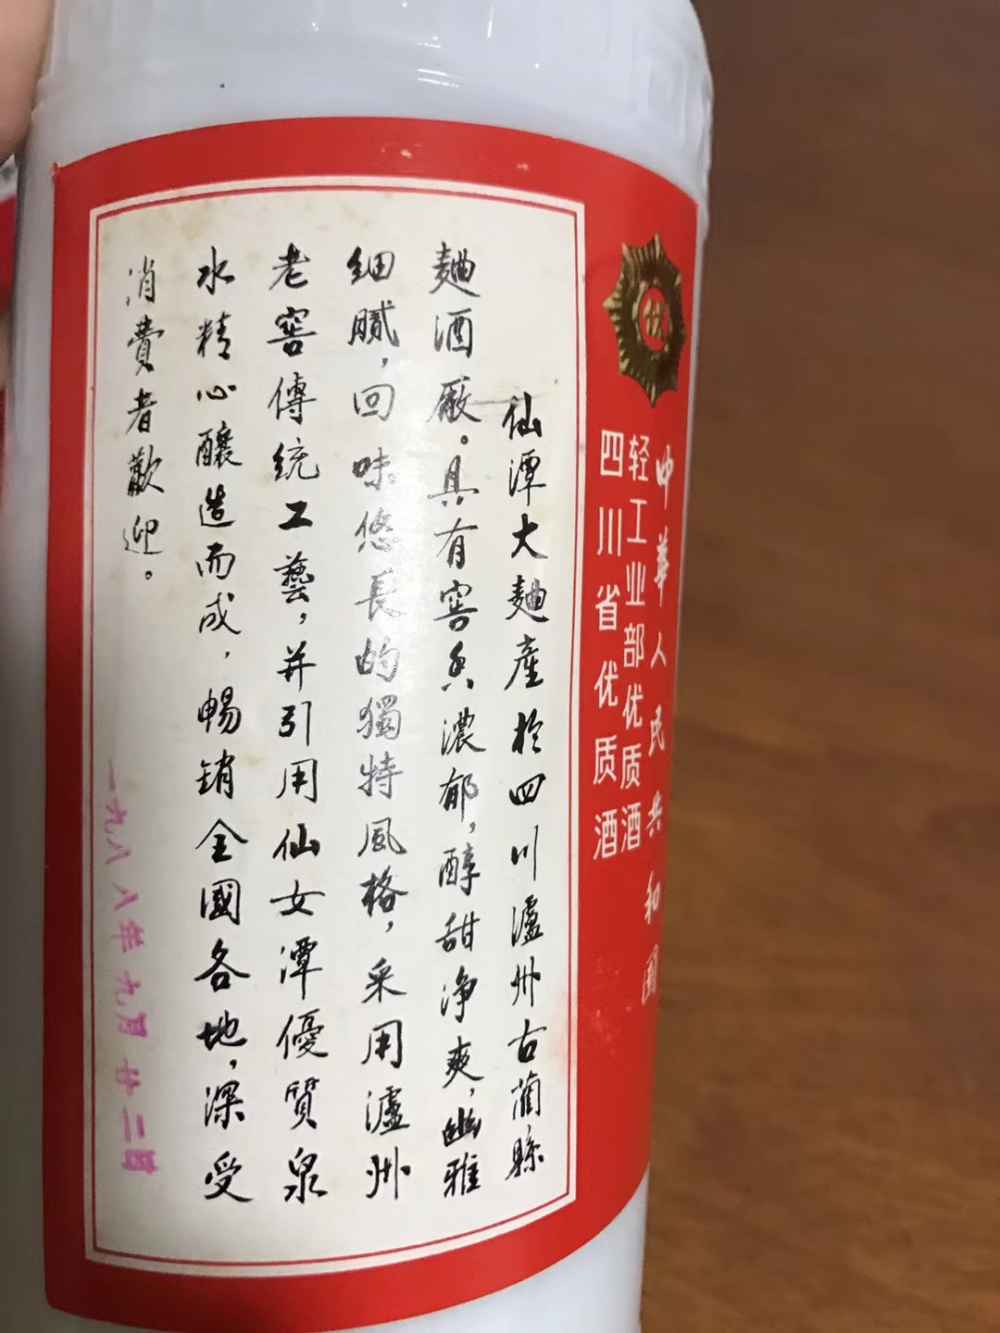 优
中華人民共和國
轻工业部优质酒
四川省优质酒
仙潭大麯產於四川瀘州古藺縣
麯酒廠。具有窖香濃郁，醇甜净爽，幽雅
細膩，回味悠長的獨特風格，采用瀘州
老窖傳統工藝，并引用仙女潭優質泉
水精心釀造而成，暢銷全國各地，深受
消費者歡迎。
一九八八年九月廿二日